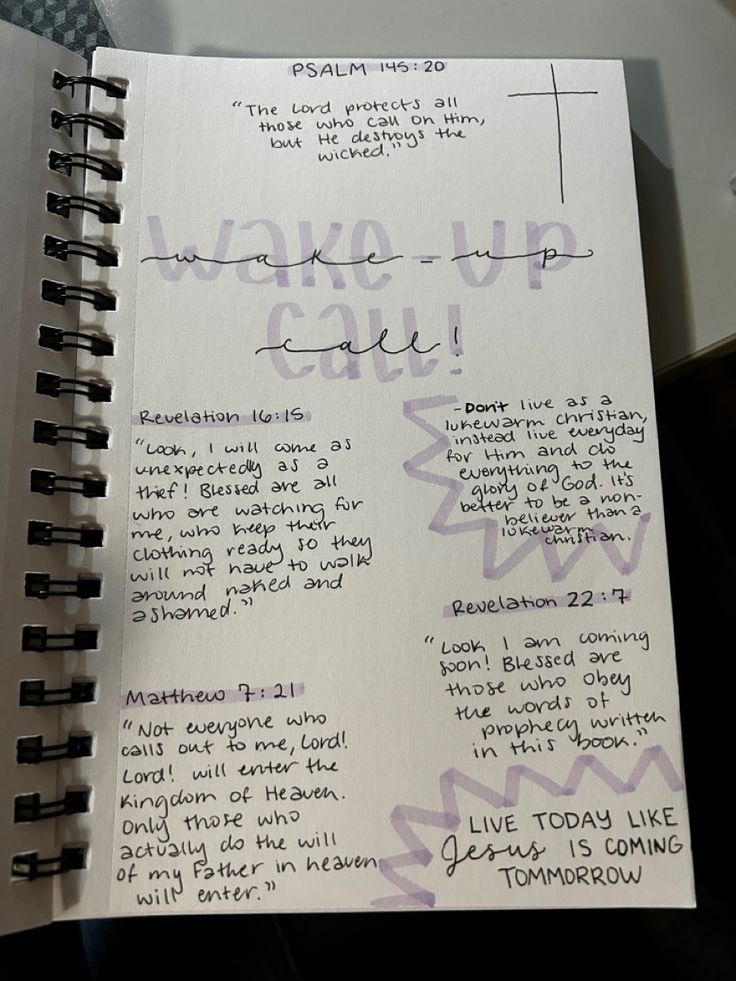 PSALM 145:20
"The Lord protects all
those who call on Him,
but He destroys the
wicked."
wake-up
call!
Revelation 16:15
"Look, I will come as
unexpectedly as a
thief! Blessed are all
who are watching for
me, who keep their
clothing ready so they
will not have to walk
around naked and
ashamed."
Matthew 7:21
"Not everyone who
calls out to me, Lord!
Lord! will enter the
Kingdom of Heaven.
Only those who
actually do the will
of my Father in heaven
will enter."
- Don't live as a
lukewarm christian,
instead live everyday
for Him and do
everything to the
glory of God. It's
better to be a non-
believer than a
lukewarm
christian.
Revelation 22:7
"Look I am coming
soon! Blessed are
those who obey
the words of
prophecy written
in this book."
LIVE TODAY LIKE
Jesus IS COMING
TOMMORROW